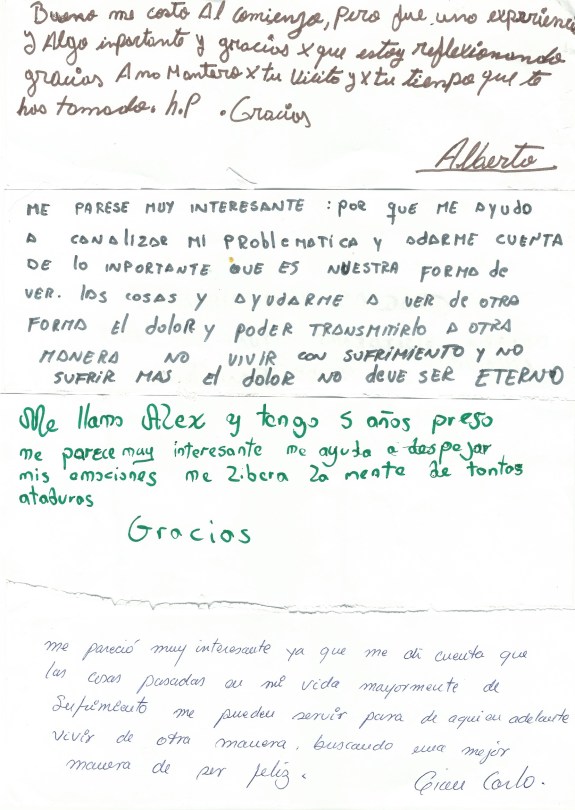 Bueno me costo Al comienzo, pero fue uno experienci
y Algo inportante y gracias x que estoy reflexionando
gracias A no Montero x tu Visito y x tu tiempo que te
has tomado. h.P . Gracias
Alberto
ME PARESE MUY INTERESANTE : POR QUE ME AYUDO
A CANALIZAR MI PROBLEMATICA Y ADARME CUENTA
DE lo INPORTANTE QUE ES NUESTRA FORMA de
VER. las COSAS Y AYUDARME A VER de OTRA
FORMA El dolor y PODER TRANSMITIRlo A OTRA
MANERA NO VIVIR CON SUFRIMIENTO Y NO
SUFRIR MAS. el dolor NO DEVE SER ETERNO
Me llamo Alex y tengo 5 años preso
me parece muy interesante me ayuda a despejar
mis emociones me libera la mente de tantas
ataduras
Gracias
me pareció muy interesante ya que me di cuenta que
las cosas pasadas en mi vida mayormente de
Sufrimiento me pueden servir para de aqui en adelante
vivir de otra manera. buscando una mejor
manera de ser feliz. Gian Carlo.